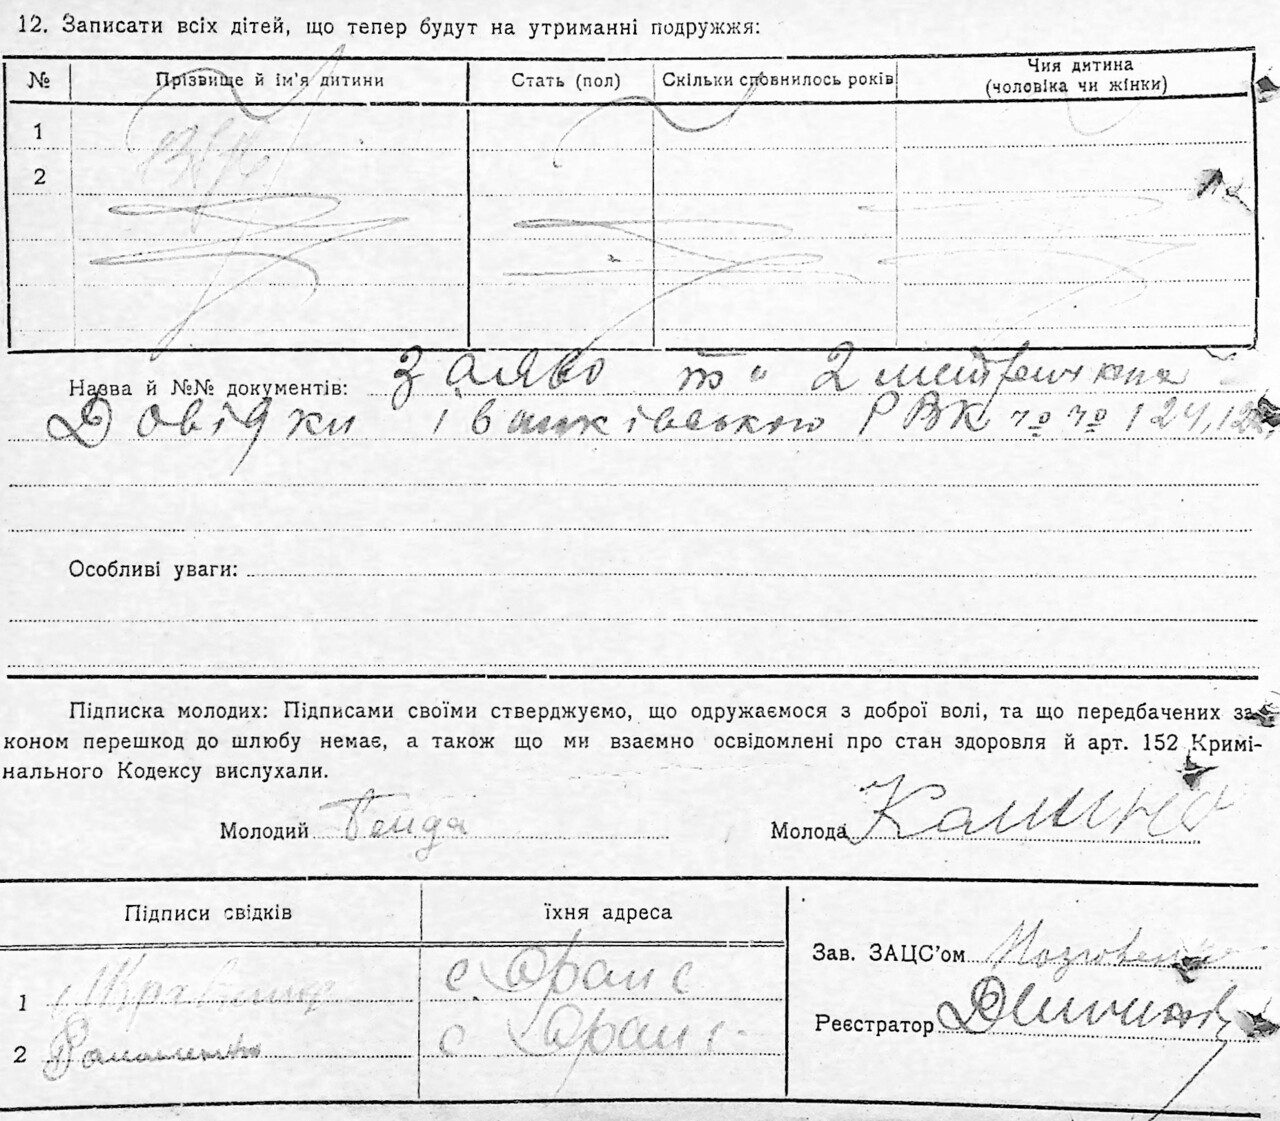 12. Записати всіх дітей, що тепер будут на утриманні подружжя:
№ Прізвище й ім’я дитини Стать (пол) Скільки сповнилось років Чия дитина
(чоловіка чи жінки)
1
2
Назва й №№ документів: Заяво та 2 метрички
Довідки Іванківського РВК 124,
Особливі уваги:
Підписка молодих: Підписами своїми стверджуємо, що одружаємося з доброї волі, та що передбачених за-
коном перешкод до шлюбу немає, а також що ми взаємно освідомлені про стан здоровля й арт. 152 Кримі-
нального Кодексу вислухали.
Молодий Гайда Молода
Підписи свідків їхня адреса
Зав. ЗАЦС’ом
1 с Оране
Реєстратор
2 Романенко с Оране